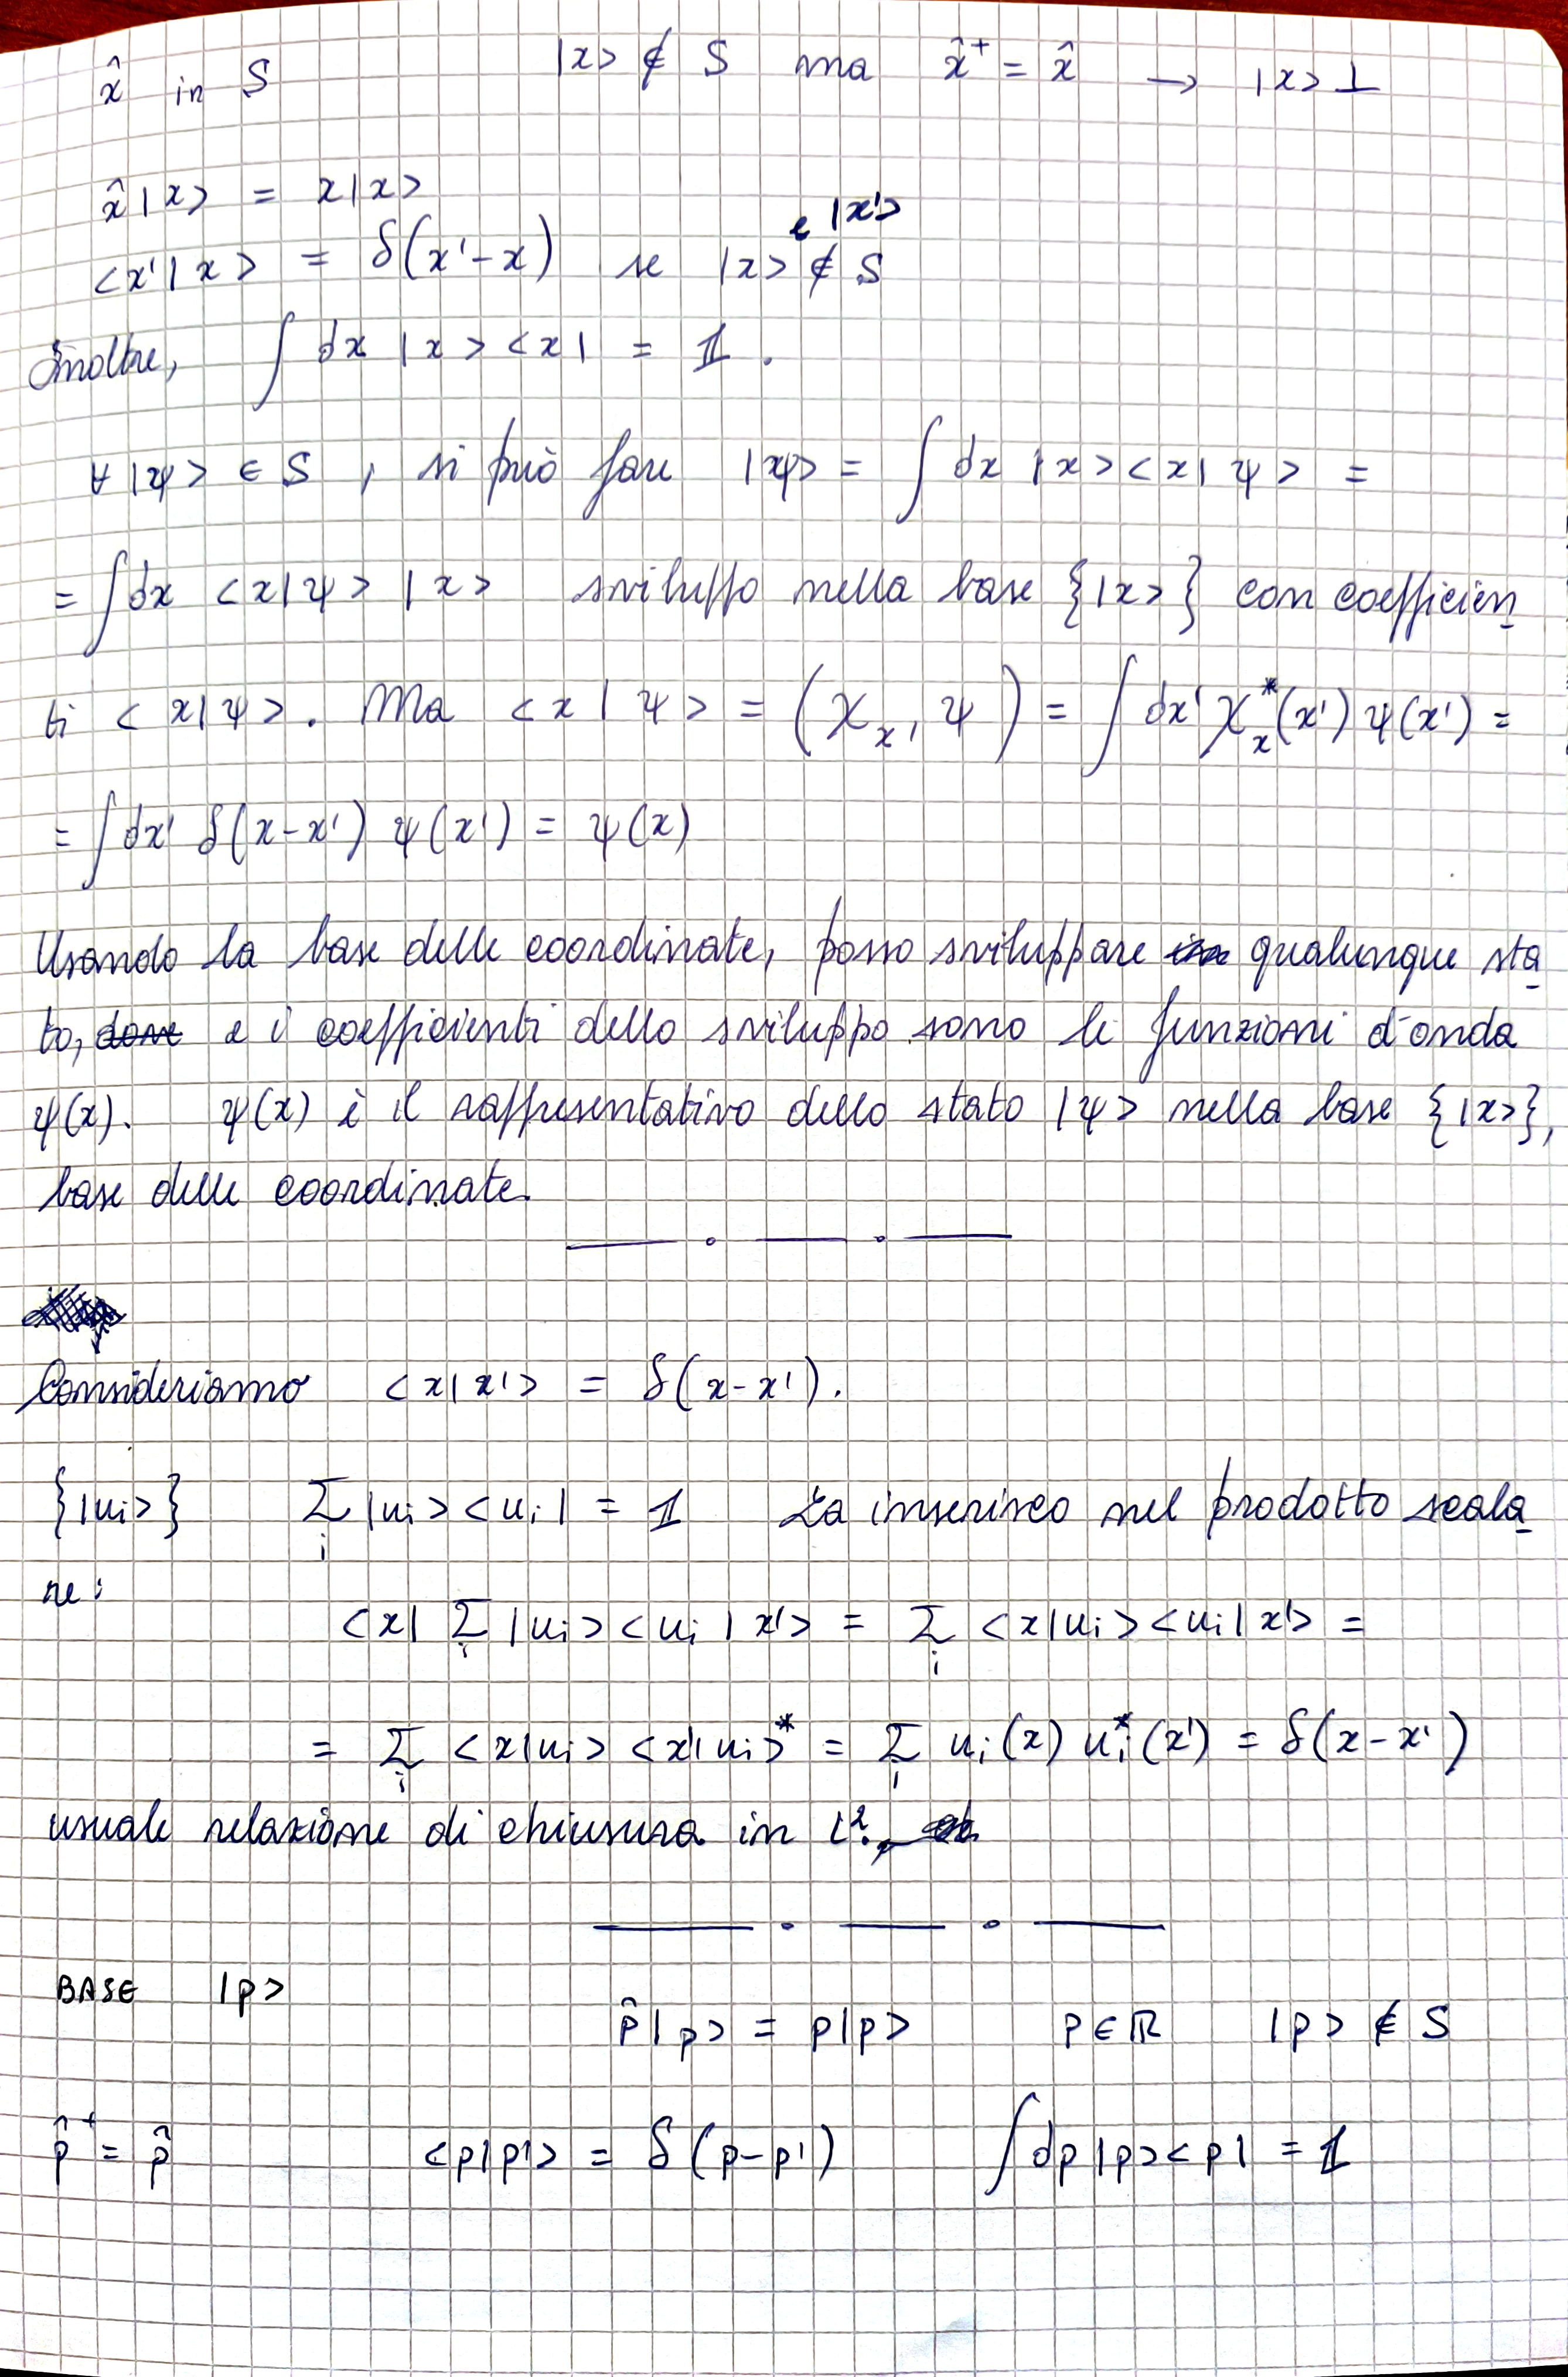 x̂ in S |x> ∉ S ma x̂⁺ = x̂ → |x> ⊥
x̂|x> = x|x>
e |x'>
<x'|x> = δ(x'-x) se |x> ∉ S
Inoltre, ∫ dx |x><x| = 𝟙.
∀ |ψ> ∈ S, si può fare |ψ> = ∫ dx |x><x|ψ> =
= ∫ dx <x|ψ> |x> sviluppo nella base {|x>} con coefficien
ti <x|ψ>. Ma <x|ψ> = (χₓ, ψ) = ∫ dx' χₓ*(x') ψ(x') =
= ∫ dx' δ(x-x') ψ(x') = ψ(x)
Usando la base delle coordinate, posso sviluppare qualunque sta
to, e i coefficienti dello sviluppo sono le funzioni d'onda
ψ(x). ψ(x) è il rappresentativo dello stato |ψ> nella base {|x>},
base delle coordinate.
Consideriamo <x|x'> = δ(x-x').
{|uᵢ>} Σᵢ |uᵢ><uᵢ| = 𝟙 La inserisco nel prodotto scala
re:
<x| Σᵢ |uᵢ><uᵢ|x'> = Σᵢ <x|uᵢ><uᵢ|x'> =
= Σᵢ <x|uᵢ><x'|uᵢ>* = Σᵢ uᵢ(x) uᵢ*(x') = δ(x-x')
usuale relazione di chiusura in L².
BASE |p>
p̂|p> = p|p> p∈ℝ |p> ∉ S
p̂⁺ = p̂ <p|p'> = δ(p-p') ∫dp|p><p| = 𝟙